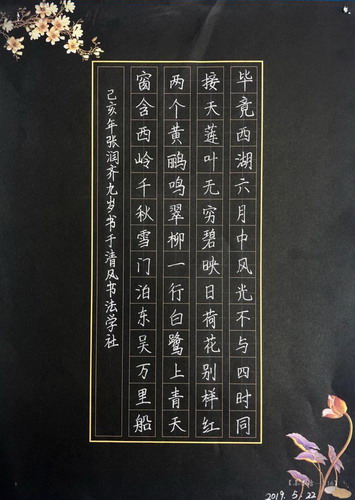 毕竟西湖六月中风光不与四时同
接天莲叶无穷碧映日荷花别样红
两个黄鹂鸣翠柳一行白鹭上青天
窗含西岭千秋雪门泊东吴万里船
己亥年张润齐九岁书于清风书法学社
2019.5.22